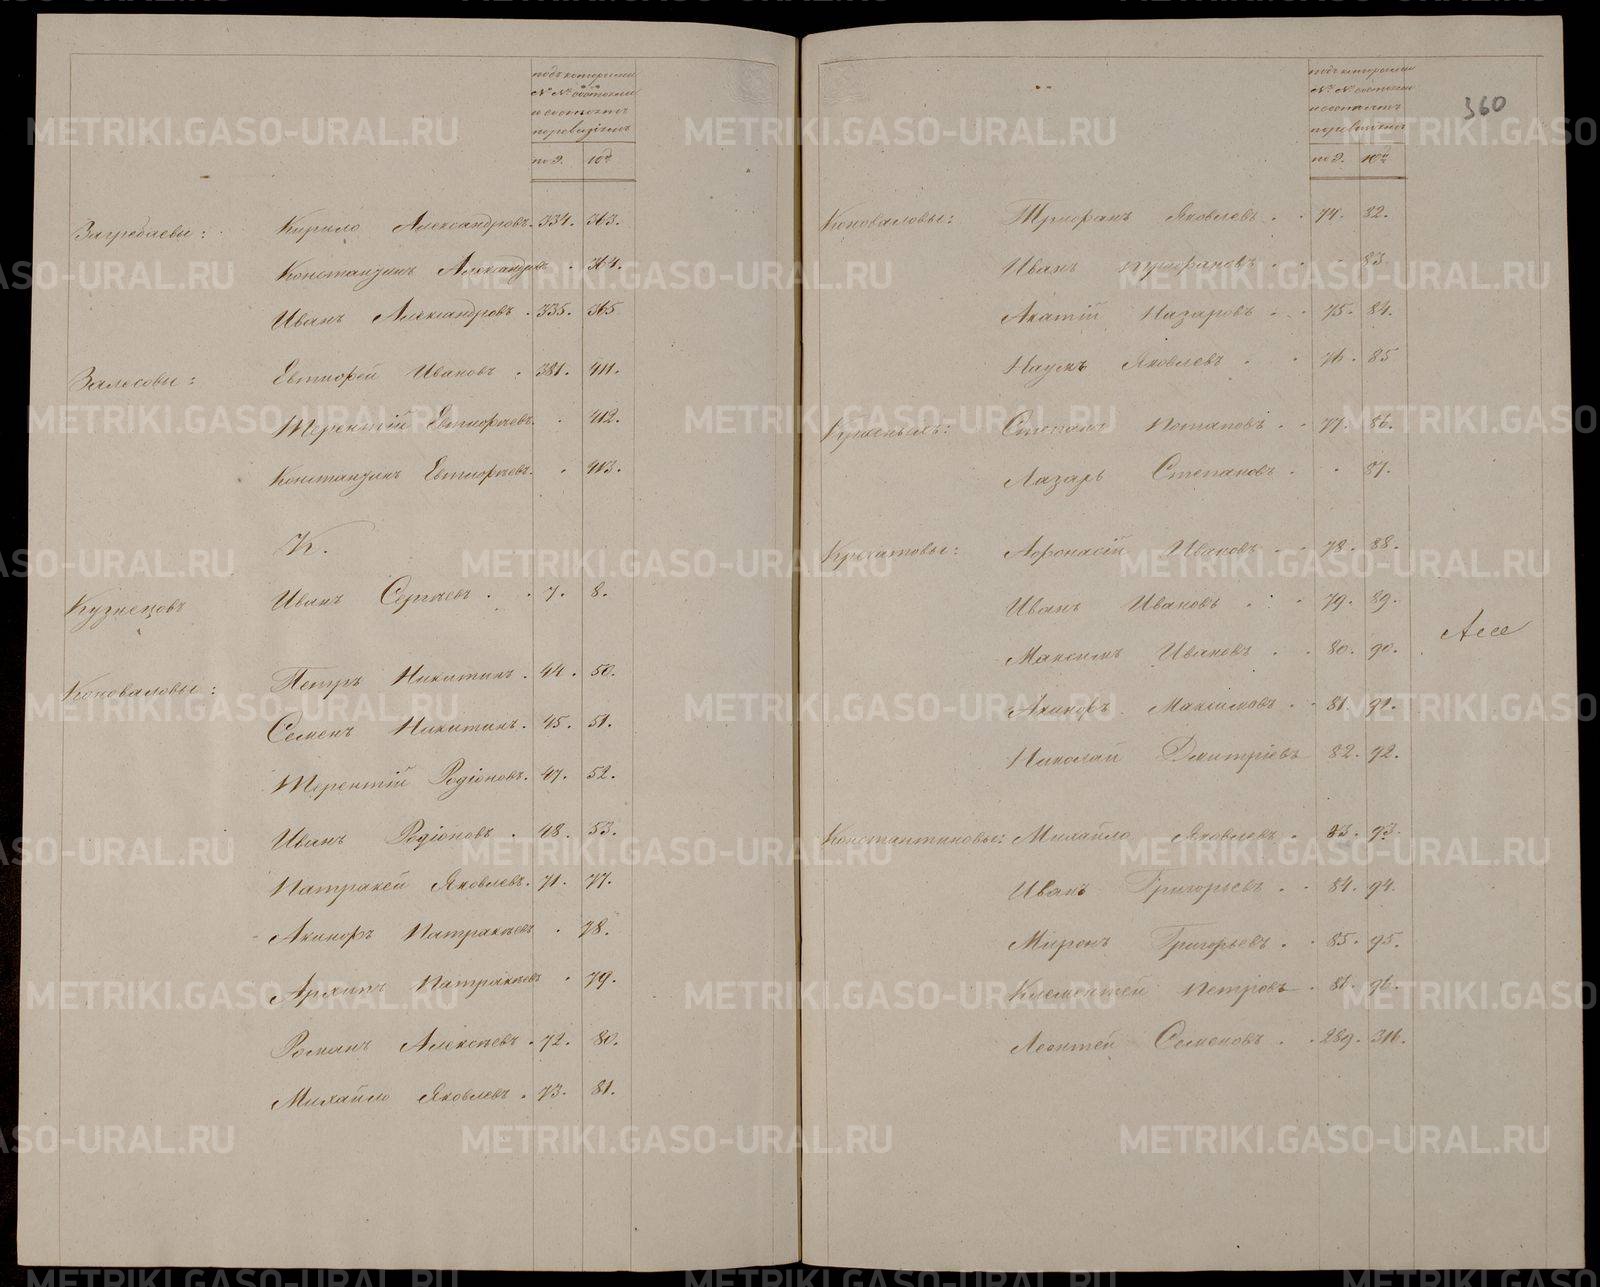 подъ которыми
№ № состояли
и состоятъ
по ревизіямъ
по 9. 10й
Загребаевы: Кирило Александровъ. 334. 363.
Констандинъ Александровъ . 364.
Иванъ Александровъ . 335. 365
Залесовы: Евтифей Ивановъ . 381. 411.
Терентій Евтифѣевъ. . 412.
Констандинъ Евтифѣевъ. . 413.
К.
Кузнецовъ Иванъ Сергѣевъ . . 7. 8.
Коноваловы: Петръ Никитинъ . 44. 50.
Семенъ Никитинъ. 45. 51.
Терентій Родіоновъ. 47. 52.
Иванъ Родіоновъ . 48. 53.
Патракей Яковлевъ. 71. 77.
Акинфъ Патракѣевъ . 78.
Архипъ Патракѣевъ . 79.
Романъ Алексѣевъ . 72. 80.
Михайло Яковлевъ . 73. 81.
подъ которыми
№ № состояли
и состоятъ
по ревизіямъ
360
по 9. 10й
Коноваловы: Трифанъ Яковлевъ . . 74. 82.
Иванъ Трифановъ . . . 83.
Акатій Назаровъ . . 75. 84.
Наумъ Яковлевъ . . 76. 85
Степанъ Потаповъ . . 77. 86.
Лазарь Степановъ . . 87.
Афонасій Ивановъ . . 78. 88.
Иванъ Ивановъ . . . 79. 89.
Максимъ Ивановъ . . 80. 90.
Акинфъ Максимовъ . . 81. 91.
Николай Дмитріевъ 82. 92.
Константиновы: Михайло Яковлевъ . 83. 93.
Иванъ Григорьевъ . . 84. 94.
Миронъ Григорьевъ . . 85. 95.
Клементей Петровъ . 86. 96.
Леонтей Семеновъ . . 289. 316.
METRIKI.GASO-URAL.RU